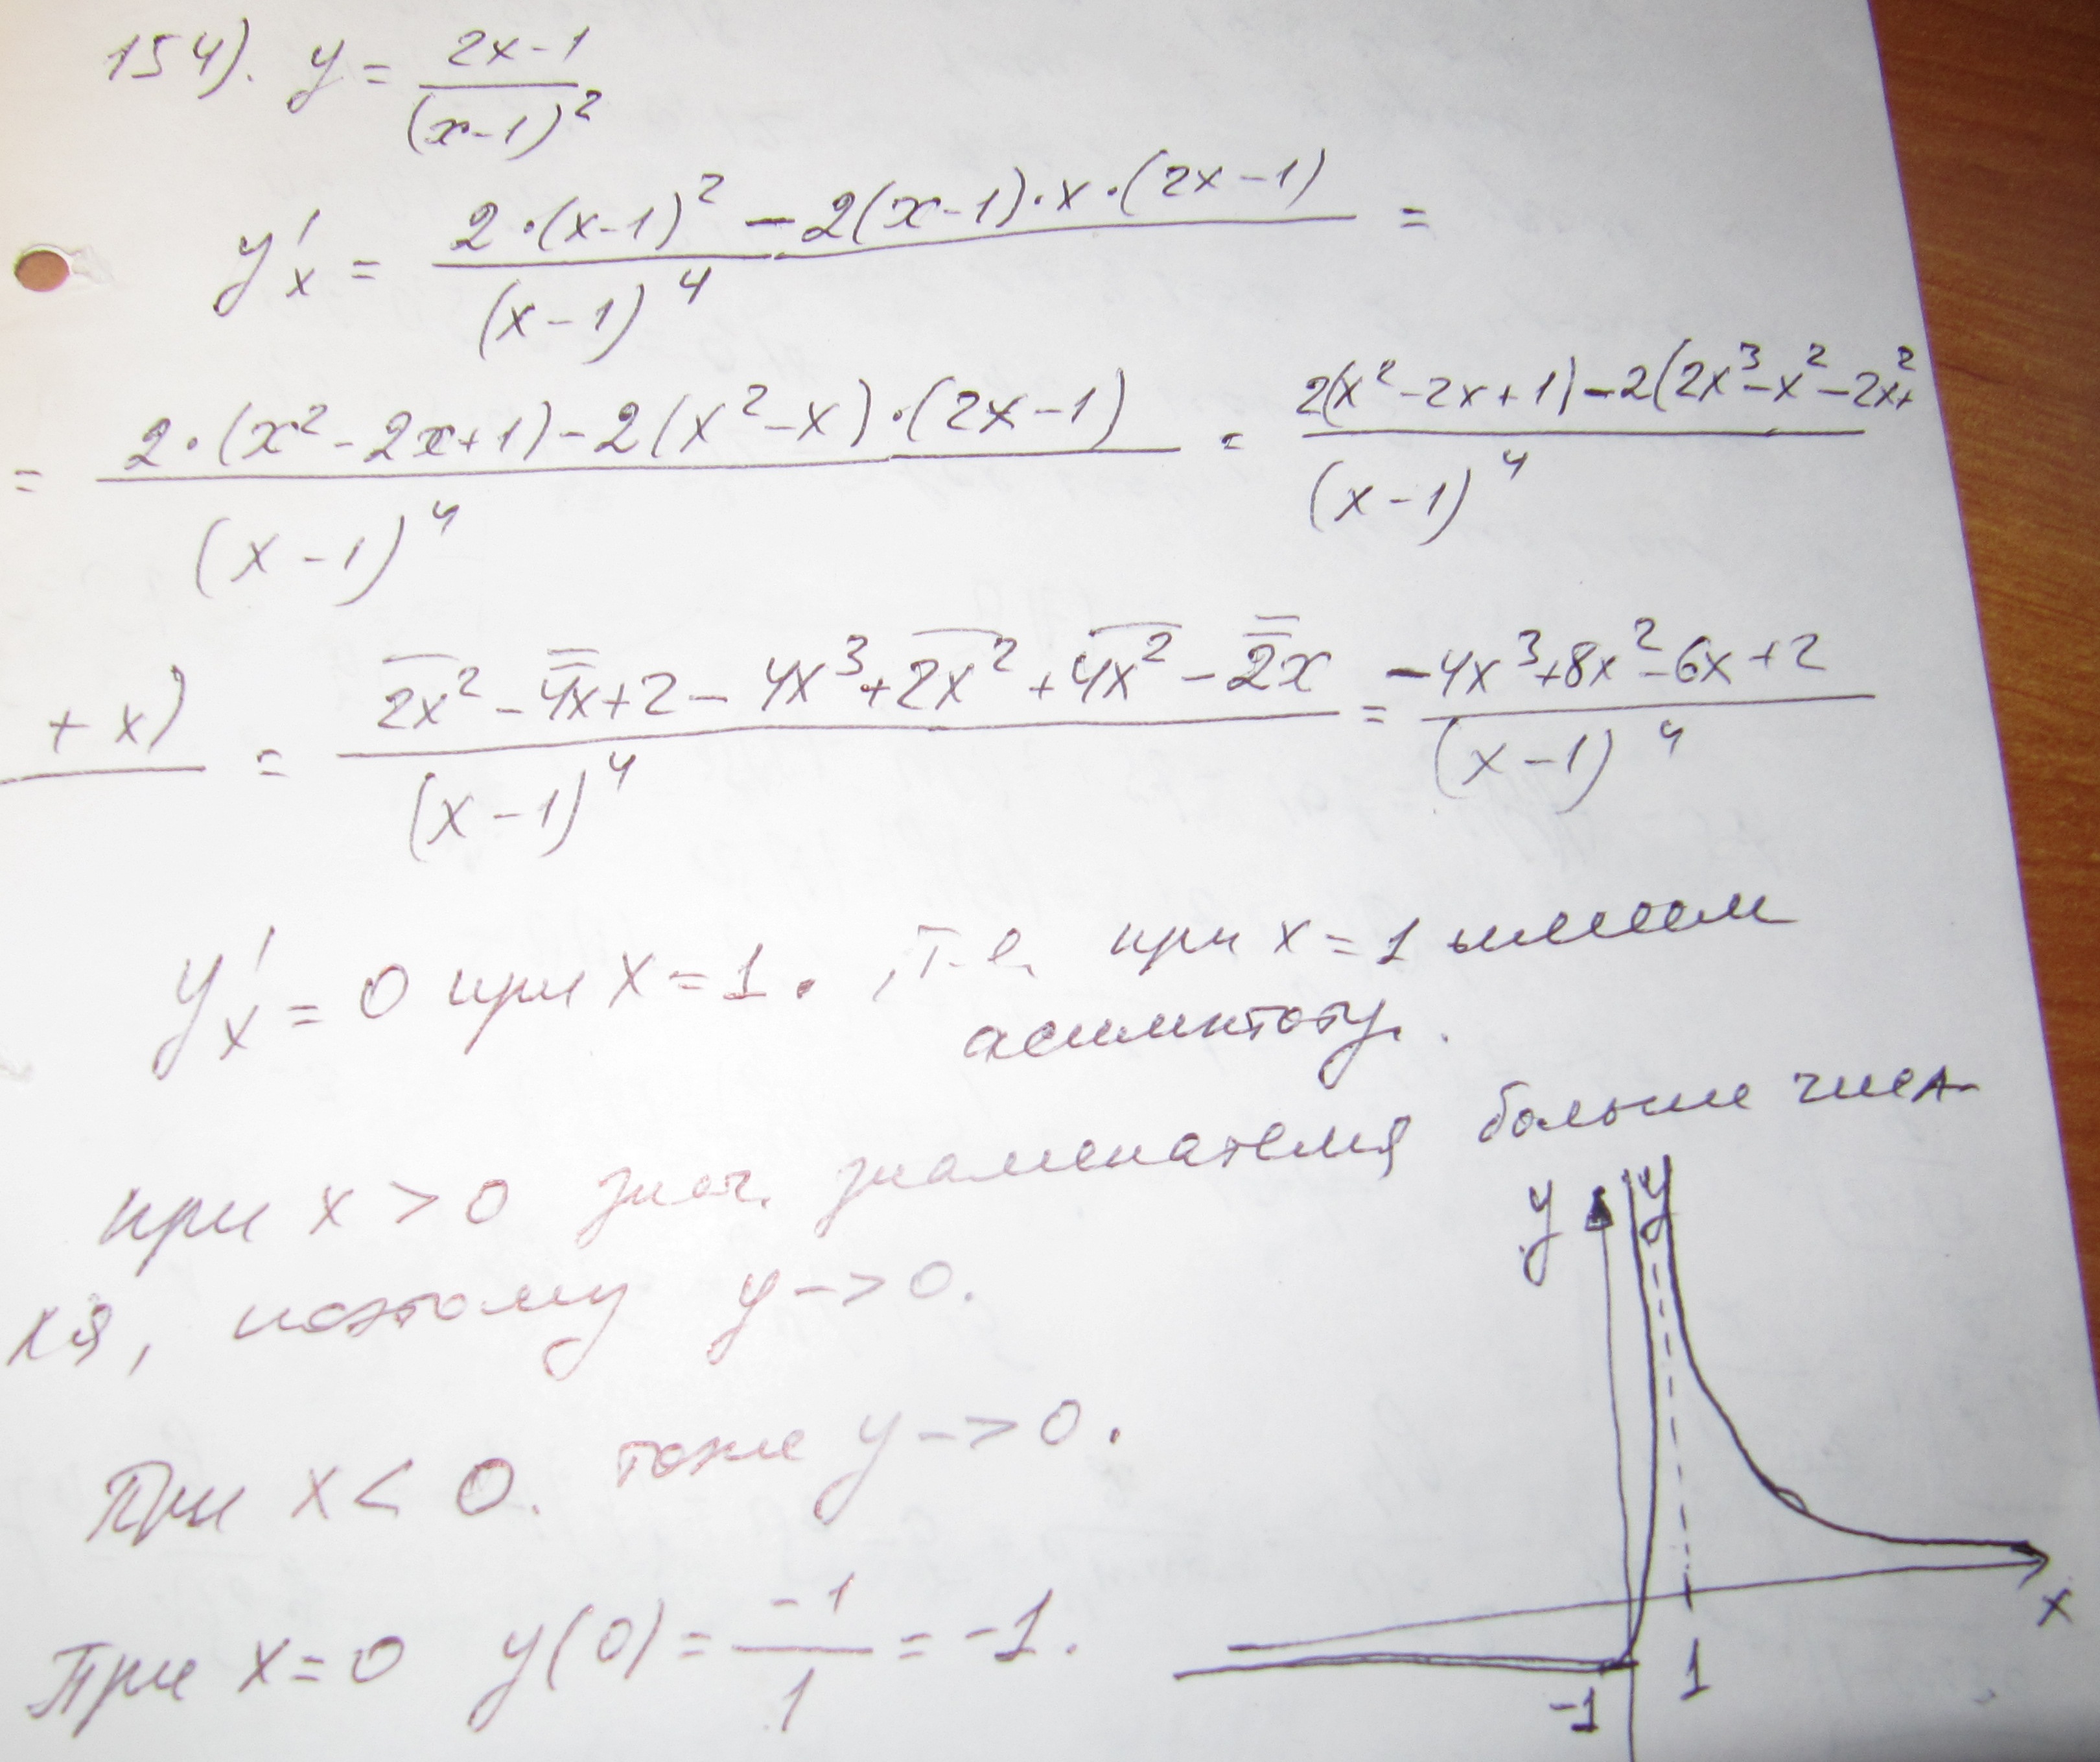 154). y = (2x-1)/(x-1)²
y'ₓ = (2·(x-1)² - 2(x-1)·x·(2x-1))/(x-1)⁴ =
= (2·(x²-2x+1) - 2(x²-x)·(2x-1))/(x-1)⁴ = (2(x²-2x+1) - 2(2x³-x²-2x²+)/(x-1)⁴
+x) = (2x²-4x+2-4x³+2x²+4x²-2x)/(x-1)⁴ = (-4x³+8x²-6x+2)/(x-1)⁴
y'ₓ = 0 при x=1. , т.е. при x=1 имеем
асимптоту.
при x > 0 знач. знаменателя больше числ
ля, поэтому y -> 0.
При x < 0. тоже y -> 0.
При x=0 y(0) = -1/1 = -1.
y
y
x
-1
1